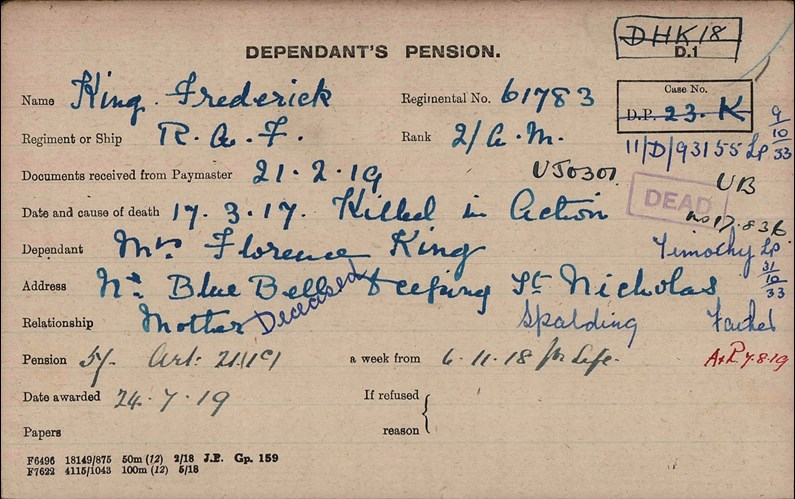 DHK18
D.1
DEPENDANT'S PENSION.
Name King. Frederick Regimental No. 61783
Case No.
D.P. 23. K
9/10/33
Regiment or Ship R. A. F. Rank 2/A.M.
11/D/93155 Lp
Documents received from Paymaster 21. 2. 19
UJ0301.
UB
DEAD
Date and cause of death 17. 3. 17. Killed in Action
Dependant Mrs Florence King
Timothy Lp
31/10/33
Address Nr. Blue Bell Deeping St. Nicholas
Relationship Mother Deceased Spalding Father
Pension 5/- Art: 21(1c) a week from 6. 11. 18 for life.
A&P. 7.8.19
Date awarded 24. 7. 19 If refused
Papers reason
F6496 18149/875 50m (12) 2/18 J.P. Gp. 159
F7622 4115/1043 100m (12) 5/18